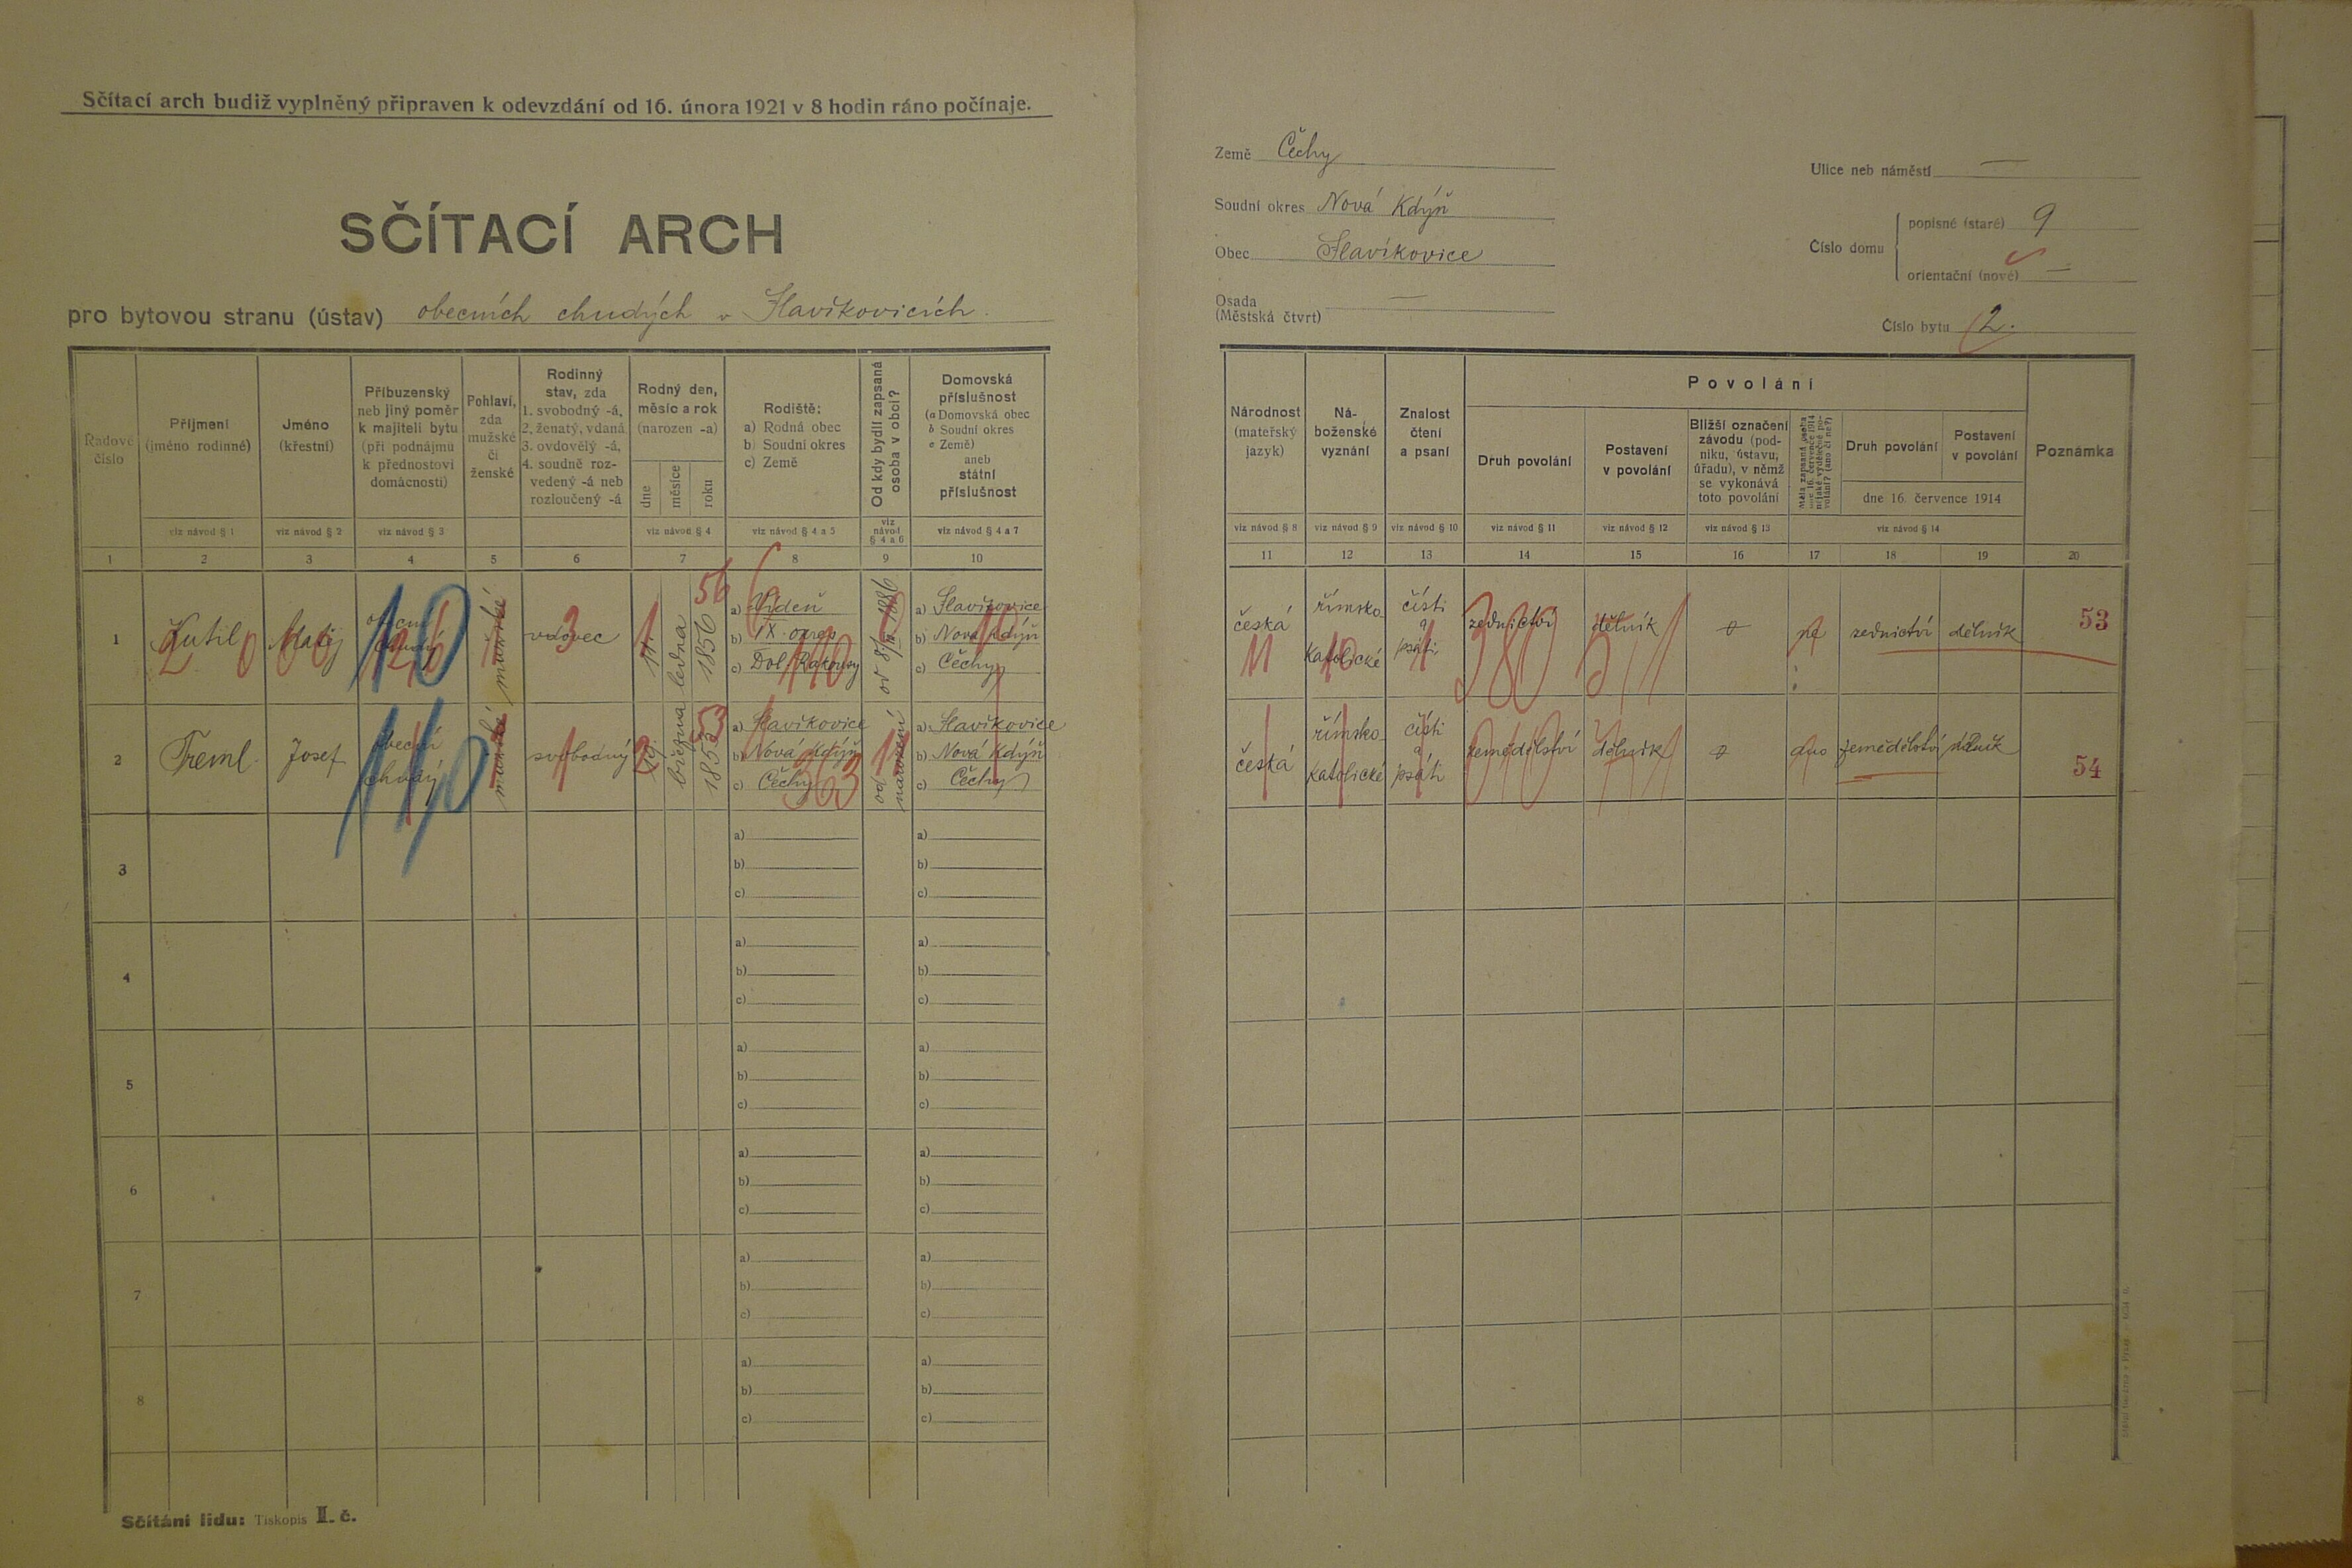 Sčítací arch budiž vyplněný připraven k odevzdání od 16. února 1921 v 8 hodin ráno počínaje.
SČÍTACÍ ARCH
pro bytovou stranu (ústav) obecních chudých v Slavíkovicích.
Země Čechy
Soudní okres Nová Kdýň
Obec Slavíkovice
Osada
(Městská čtvrt) —
Ulice neb náměstí —
Číslo domu
popisné (staré) 9
orientační (nové) —
Číslo bytu 2.
Řadové číslo
Příjmení (jméno rodinné)
viz návod § 1
Jméno (křestní)
viz návod § 2
Příbuzenský neb jiný poměr k majiteli bytu (při podnájmu k přednostovi domácnosti)
viz návod § 3
Pohlaví, zda mužské či ženské
Rodinný stav, zda
1. svobodný -á,
2. ženatý, vdaná
3. ovdovělý -á,
4. soudně rozvedený -á neb rozloučený -á
Rodný den, měsíc a rok (narozen -a)
dne měsíce roku
viz návod § 4
Rodiště:
a) Rodná obec
b) Soudní okres
c) Země
viz návod § 4 a 5
Od kdy bydlí zapsaná osoba v obci?
viz návod § 4 a 6
Domovská příslušnost
(a Domovská obec
b Soudní okres
c Země)
aneb
státní příslušnost
viz návod § 4 a 7
Národnost (mateřský jazyk)
viz návod § 8
Náboženské vyznání
viz návod § 9
Znalost čtení a psaní
viz návod § 10
Povolání
Druh povolání
viz návod § 11
Postavení v povolání
viz návod § 12
Bližší označení závodu (podniku, ústavu, úřadu), v němž se vykonává toto povolání
viz návod § 13
Měla zapsaná osoba dne 16. července 1914 nějaké výdělečné povolání? (ano či ne?)
Druh povolání
Postavení v povolání
dne 16. července 1914
viz návod § 14
Poznámka
1 2 3 4 5 6 7 8 9 10 11 12 13 14 15 16 17 18 19 20
1 Kutil Matěj obecní chudý mužské vdovec ledna 1856
a) Vídeň
b) IX. okres
c) Dol. Rakousy
od 1886
a) Slavíkovice
b) Nová Kdýň
c) Čechy
česká římsko katolické čísti a psáti zednictví dělník ne zednictví dělník 53
56 3 110 11 10 1 380
2 Treml Josef obecní chudý mužské svobodný 19 března 1853
a) Slavíkovice
b) Nová Kdýň
c) Čechy
od narození
a) Slavíkovice
b) Nová Kdýň
c) Čechy
česká římsko katolické čísti a psáti zemědělství dělník ano zemědělství dělník 54
53 1 363 010
3
a)
b)
c)
a)
b)
c)
4
a)
b)
c)
a)
b)
c)
5
a)
b)
c)
a)
b)
c)
6
a)
b)
c)
a)
b)
c)
7
a)
b)
c)
a)
b)
c)
8
a)
b)
c)
a)
b)
c)
Sčítání lidu: Tiskopis II. č.